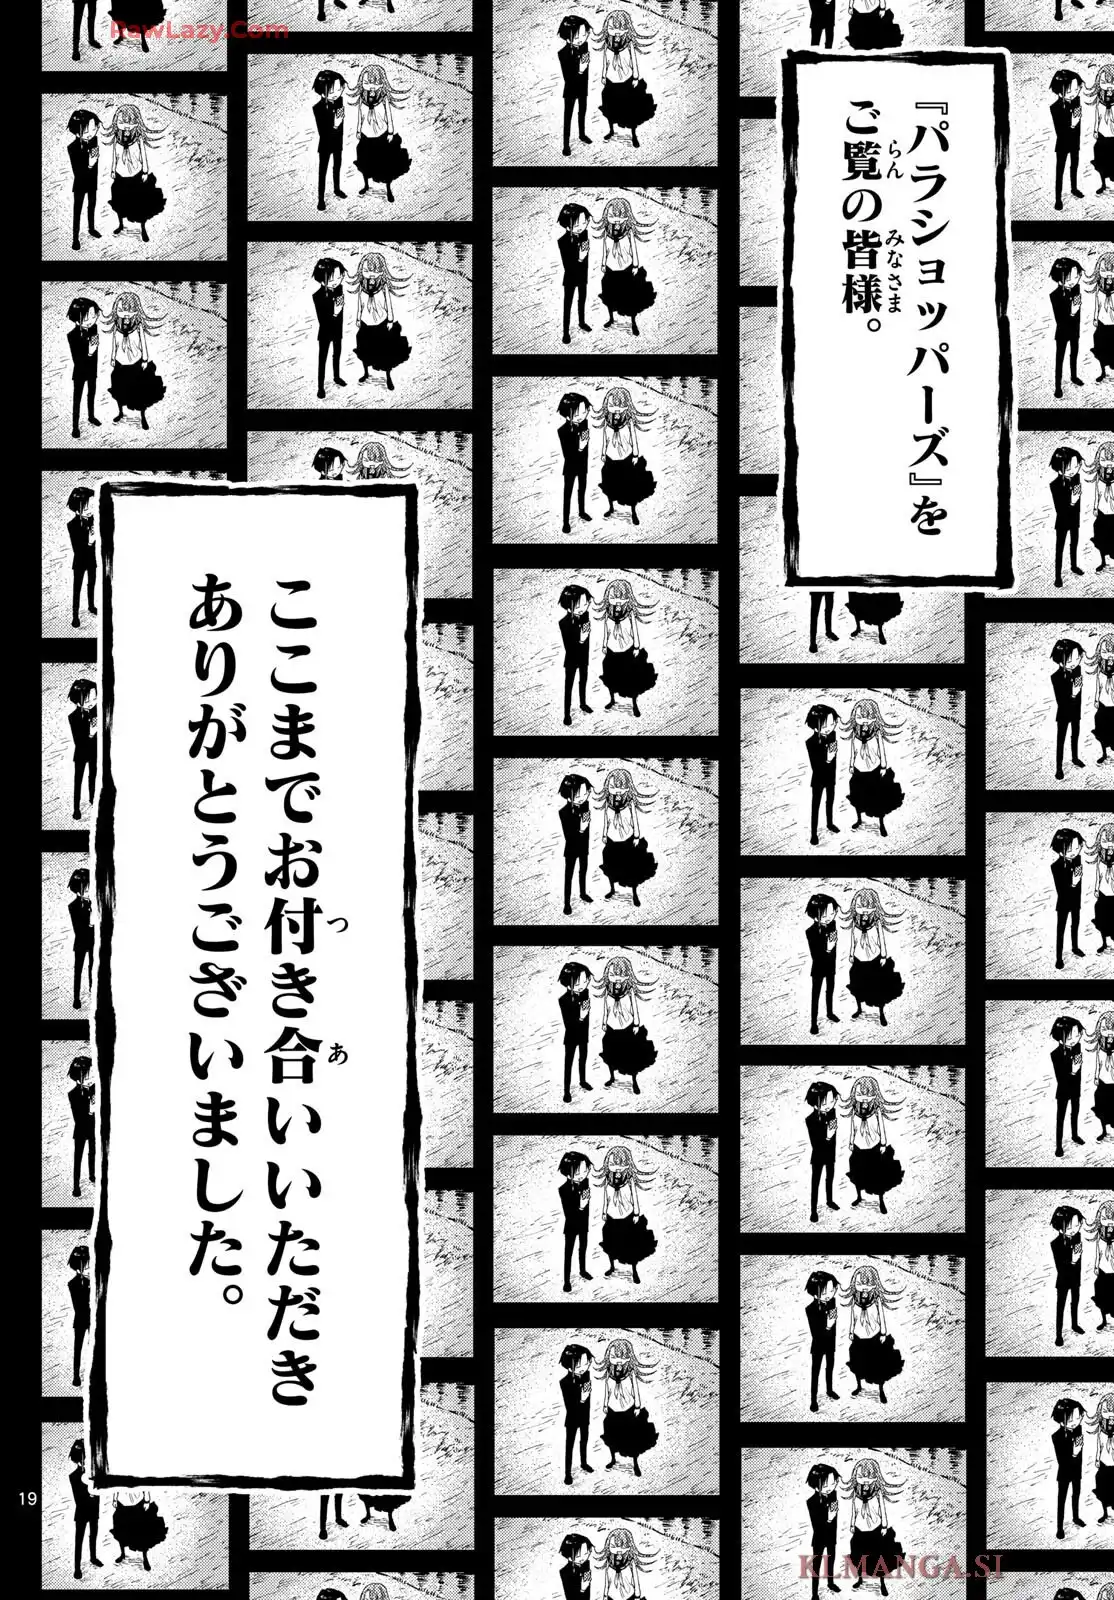 RawLazy.Com
『パラショッパーズ』を
ご覧の皆様。
らん
みなさま
ここまでお付き合いいただき
つ
あ
ありがとうございました。
19
KLMANGA.SI